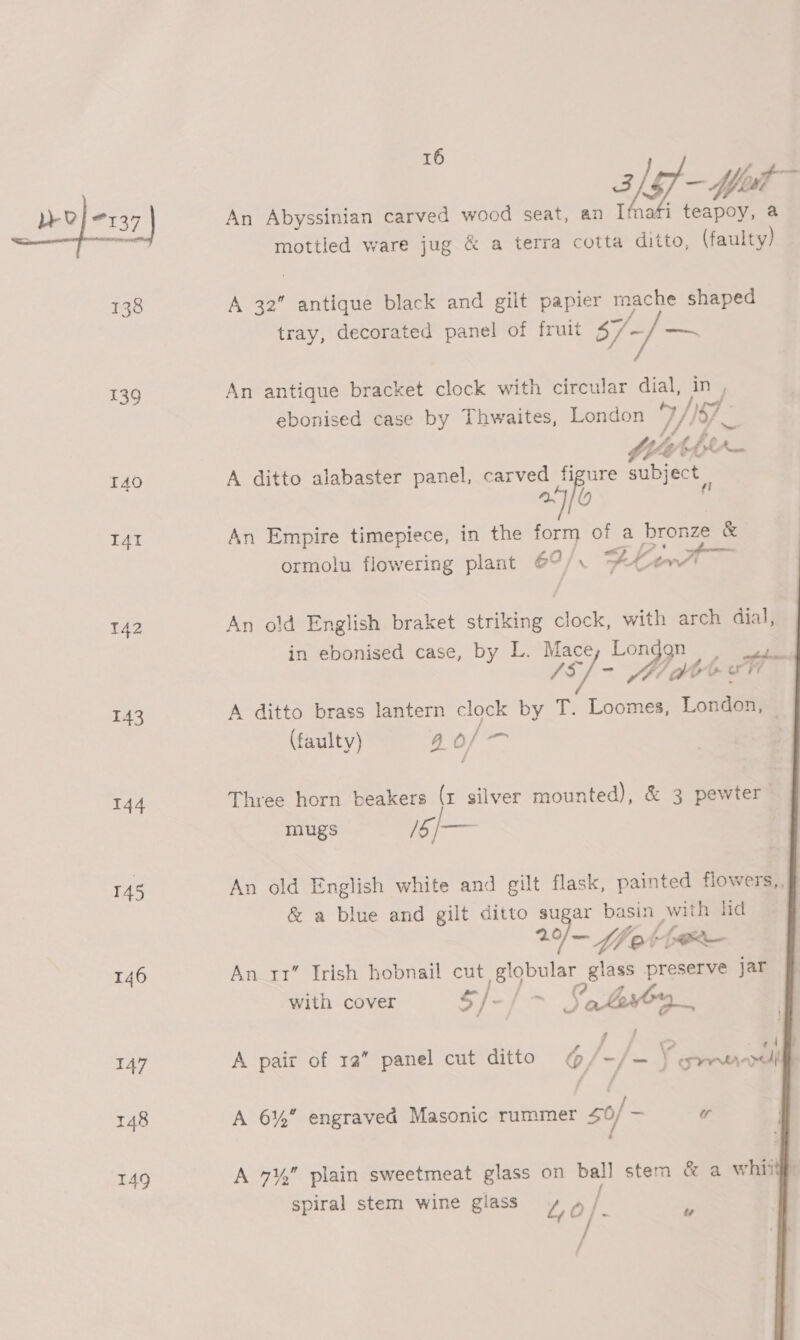 16
137 An Abyssinian carved wood seat, an Imari teapoy, a
mottled ware jug & a terra cotta ditto, (faulty)
138 A 32" antique black and gilt papier mache shaped
tray, decorated panel of fruit
139 An antique bracket clock with circular dial, in
ebonised case by Thwaites, London
140 A ditto alabaster panel, carved figure subject
27/6 "
141 An Empire timepiece, in the form of a bronze &
ormolu flowering plant 60/
142 An old English braket striking clock, with arch dial,
in ebonised case, by L. Mace, London
15/-
143 A ditto brass lantern clock by T. Loomes, London,
(faulty)
144 Three horn beakers (1 silver mounted), & 3 pewter
mugs 15/-
145 An old English white and gilt flask, painted flowers,
& a blue and gilt ditto sugar basin with lid
20/-
146 An 11" Irish hobnail cut globular glass preserve jar
with cover 5/-/-
147 A pair of 12" panel cut ditto 6/-/-
148 A 6½" engraved Masonic rummer 50/- "
149 A 7½" plain sweetmeat glass on ball stem & a
spiral stem wine glass 40/- "